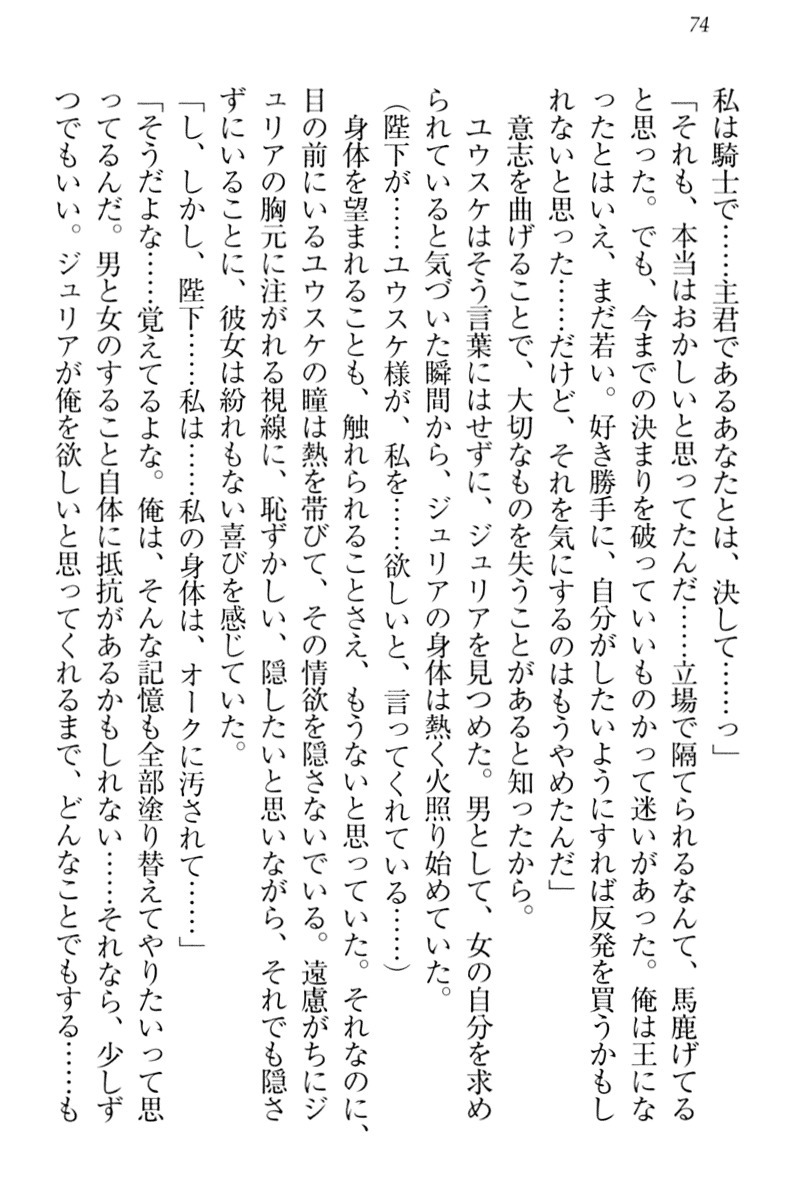 74
私は騎士で……主君であるあなたとは、決して……っ」
「それも、本当はおかしいと思ってたんだ……立場で隔てられるなんて、馬鹿げてる
と思った。でも、今までの決まりを破っていいものかって迷いがあった。俺は王にな
ったとはいえ、まだ若い。好き勝手に、自分がしたいようにすれば反発を買うかもし
れないと思った……だけど、それを気にするのはもうやめたんだ」
意志を曲げることで、大切なものを失うことがあると知ったから。
ユウスケはそう言葉にはせずに、ジュリアを見つめた。男として、女の自分を求め
られていると気づいた瞬間から、ジュリアの身体は熱く火照り始めていた。
（陛下が……ユウスケ様が、私を……欲しいと、言ってくれている……）
身体を望まれることも、触れられることさえ、もうないと思っていた。それなのに、
目の前にいるユウスケの瞳は熱を帯びて、その情欲を隠さないでいる。遠慮がちにジ
ュリアの胸元に注がれる視線に、恥ずかしい、隠したいと思いながら、それでも隠さ
ずにいることに、彼女は紛れもない喜びを感じていた。
「し、しかし、陛下……私は……私の身体は、オークに汚されて……」
「そうだよな……覚えてるよな。俺は、そんな記憶も全部塗り替えてやりたいって思
ってるんだ。男と女のすること自体に抵抗があるかもしれない……それなら、少しず
つでもいい。ジュリアが俺を欲しいと思ってくれるまで、どんなことでもする……も